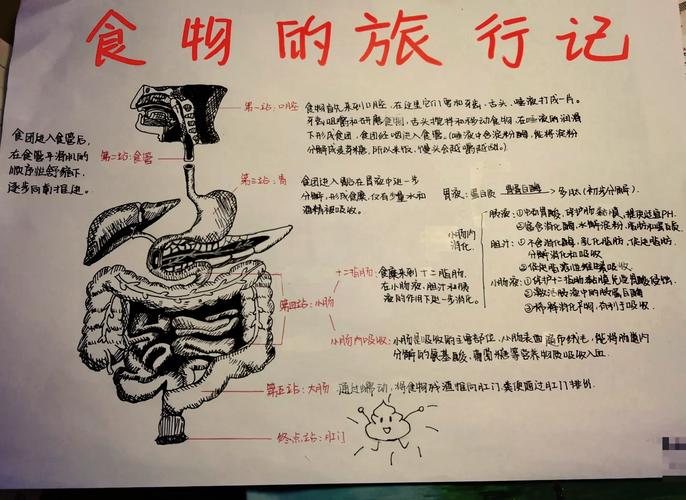 食物的旅行记
第一站:口腔
食物首先来到口腔,在这里它们要和牙齿、舌头、唾液打成一片。
牙齿咀嚼和研磨食物,舌头搅拌和移动食物,在唾液的润滑
下形成食团,食团经咽进入食管。(唾液中含淀粉酶,能将淀粉
分解成麦芽糖,所以米饭、馒头会越嚼越甜。)
食团进入食管后,
在食管平滑肌的
顺序性舒缩下,
逐步向前推进。
第二站:食管
第三站:胃
食团进入胃后在胃液中进一步
分解,形成食糜,仅有少量水和
酒精被吸收。
胃液:蛋白质 胃蛋白酶 多肽(初步分解).
小肠内
消化
胰液:①中和胃酸,保护肠黏膜,提供适宜PH.
②富含消化酶,水解淀粉、脂肪和蛋白质
胆汁:①不含消化酶,乳化脂肪,促进脂肪
分解消化和吸收
②促进脂溶性维生素吸收.
小肠液:①保护十二指肠黏膜免受胃酸侵蚀.
②激活胰液中的胰蛋白酶
③稀释消化产物,有利于吸收.
第四站:小肠
十二指肠:食糜来到十二指肠,
在小肠液、胆汁和胰
液的作用下进一步消化。
小肠内吸收:小肠是吸收的主要部位,小肠表面
能将肠腔内
分解的氨基酸、葡萄糖等营养物质吸收入血.
第五站:大肠
通过蠕动,将食物残渣推向肛门,粪便通过肛门排出.
终点站:肛门